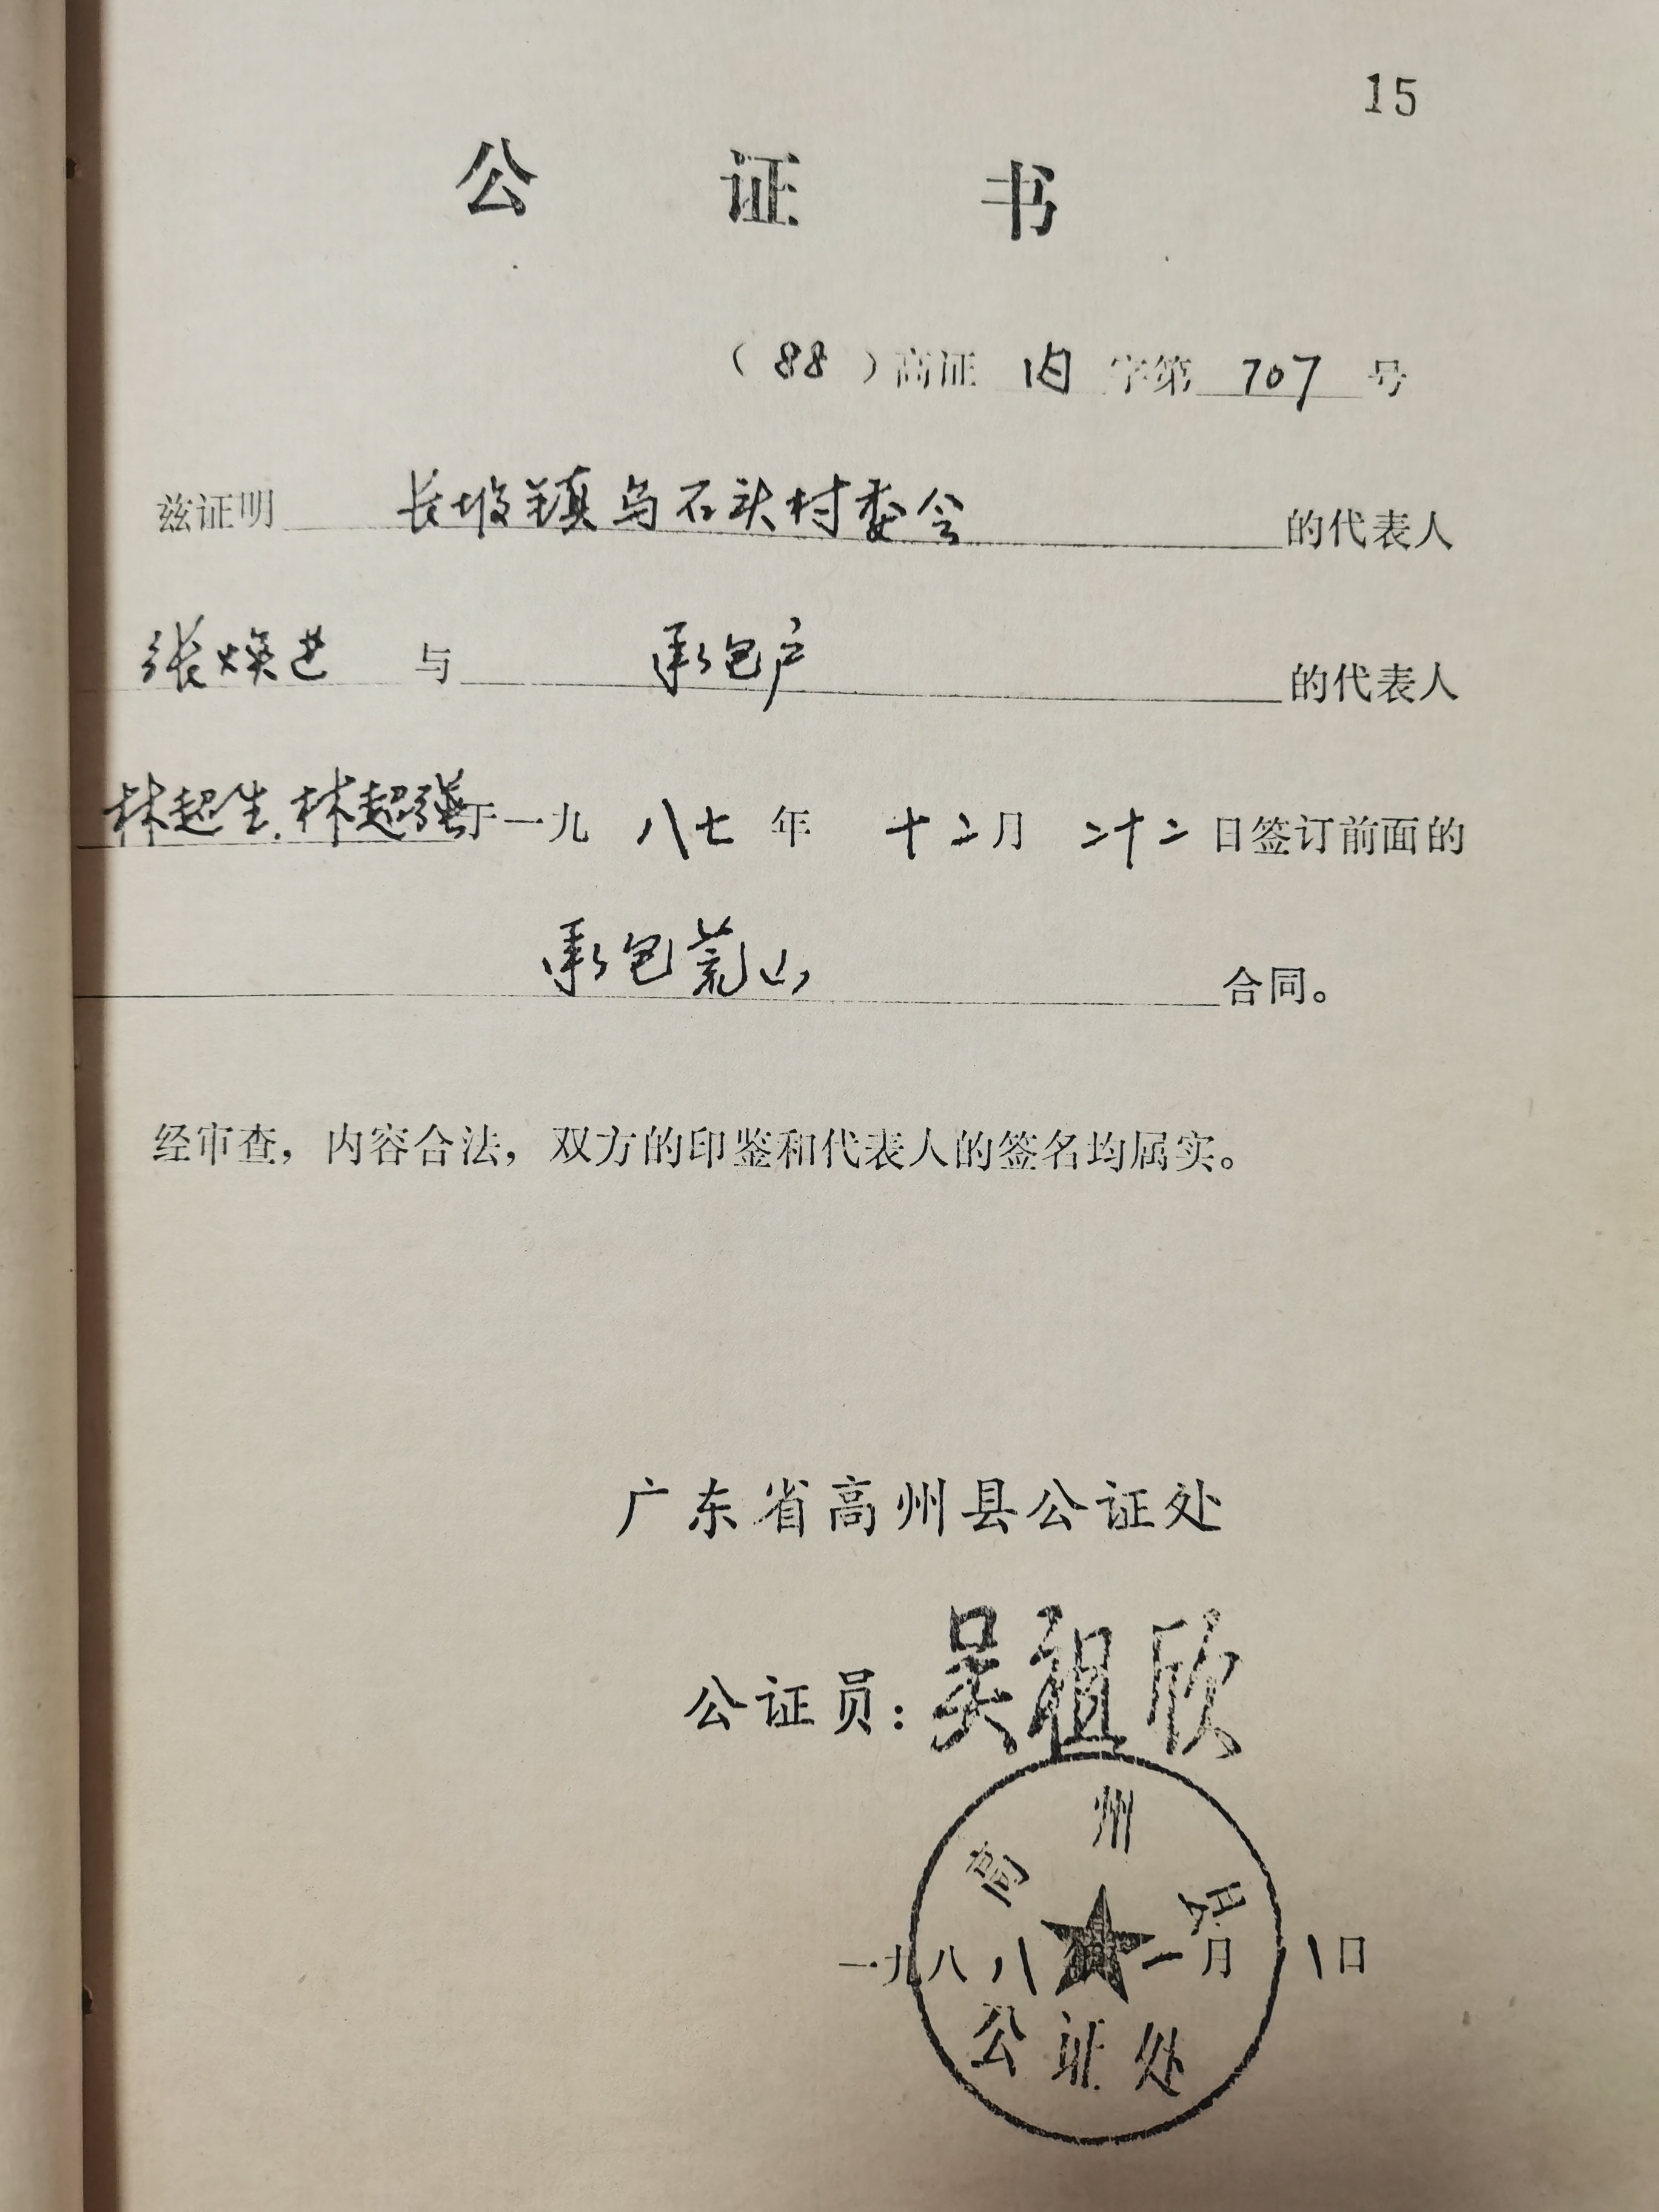 15
公证书
（88）高证内字第707号
兹证明长坡镇乌石头村委会的代表人
张焕进与承包户的代表人
林起生、林超强于一九八七年十二月二十二日签订前面的
承包荒山合同。
经审查，内容合法，双方的印鉴和代表人的签名均属实。
广东省高州县公证处
公证员：吴祖欣
高州县
一九八八年一月 日
公证处